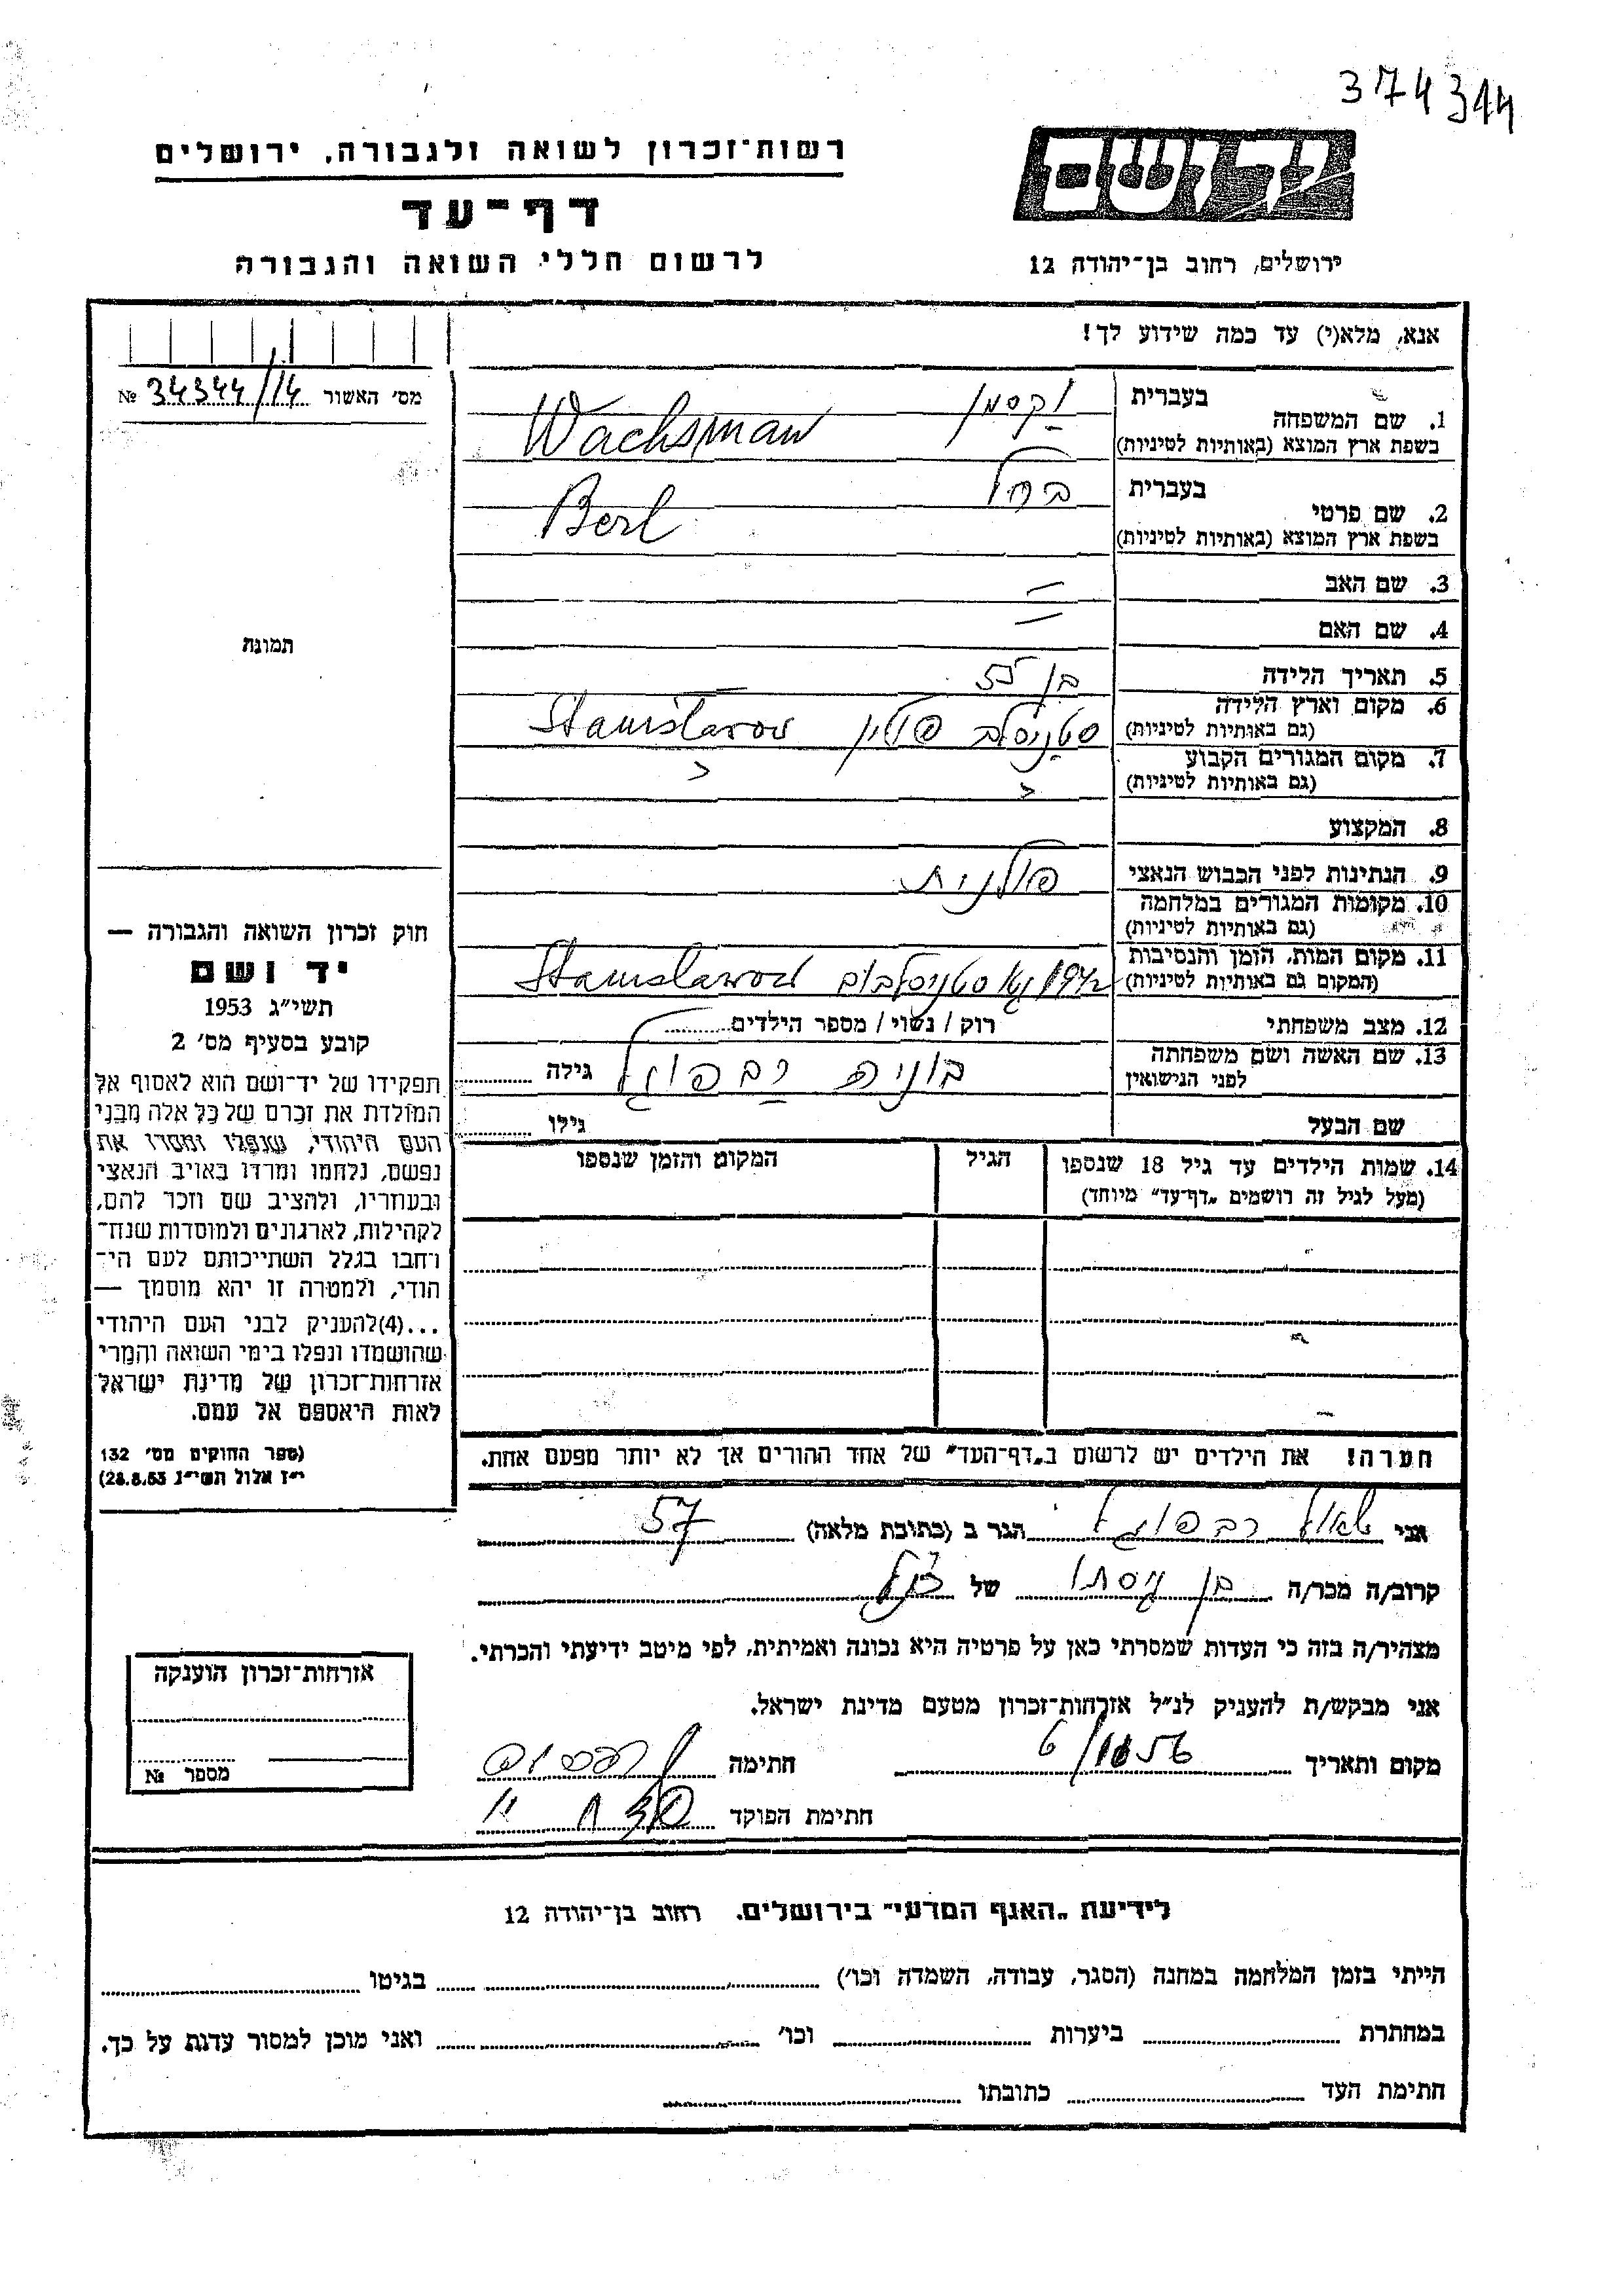 374344
רשות־זכרון לשואה ולגבורה, ירושלים
דף־עד
לרשום חללי השואה והגבורה
ידושם
ירושלים, רחוב בן־יהודה 12
אנא, מלא(י) עד כמה שידוע לך!
מס׳ האשור № 34344/14
תמונה
1. שם המשפחה
בעברית וקסמן
בשפת ארץ המוצא (באותיות לטיניות) Wachsman
2. שם פרטי
בעברית ברל
בשפת ארץ המוצא (באותיות לטיניות) Berl
3. שם האב —
4. שם האם —
5. תאריך הלידה בן 55
6. מקום וארץ הלידה
(גם באותיות לטיניות) סטניסלב פולין Stanisławow
7. מקום המגורים הקבוע
(גם באותיות לטיניות)
8. המקצוע
9. הנתינות לפני הכבוש הנאצי פולנית
10. מקומות המגורים במלחמה
(גם באותיות לטיניות)
11. מקום המות, הזמן והנסיבות
(המקום גם באותיות לטיניות) 1942 Stanislawow
12. מצב משפחתי רוק / נשוי / מספר הילדים
13. שם האשה ושם משפחתה
לפני הנישואין רבפוגל גילה
שם הבעל גילו
14. שמות הילדים עד גיל 18 שנספו
(מעל לגיל זה רושמים „דף־עד״ מיוחד)
הגיל
המקום והזמן שנספו
הערה! את הילדים יש לרשום ב„דף־העד״ של אחד ההורים אך לא יותר מפעם אחת.
חוק זכרון השואה והגבורה —
יד ושם
תשי״ג 1953
קובע בסעיף מס׳ 2
תפקידו של יד־ושם הוא לאסוף אל
המולדת את זכרם של כל אלה מבני
העם היהודי, שנפלו ומסרו את
נפשם, נלחמו ומרדו באויב הנאצי
ובעוזריו, ולהציב שם וזכר להם,
לקהילות, לארגונים ולמוסדות שנח־
רבו בגלל השתייכותם לעם הי־
הודי, ולמטרה זו יהא מוסמך —
...(4)להעניק לבני העם היהודי
שהושמדו ונפלו בימי השואה והמרי
אזרחות־זכרון של מדינת ישראל
לאות היאספם אל עמם.
(ספר החוקים מס׳ 132
י״ז אלול תשי״ג 28.8.53)
אני שאול רבפוגל הגר ב (כתובת מלאה) 57
קרוב/ה מכר/ה בן גיסתו של
מצהיר/ה בזה כי העדות שמסרתי כאן על פרטיה היא נכונה ואמיתית, לפי מיטב ידיעתי והכרתי.
אני מבקש/ת להעניק לנ״ל אזרחות־זכרון מטעם מדינת ישראל.
מקום ותאריך חתימה
חתימת הפוקד
אזרחות־זכרון הוענקה
מספר №
לידיעת „האגף המדעי״ בירושלים. רחוב בן־יהודה 12
הייתי בזמן המלחמה במחנה (הסגר, עבודה, השמדה וכו׳) בגיטו
במחתרת ביערות וכו׳ ואני מוכן למסור עדות על כך.
חתימת העד כתובתו